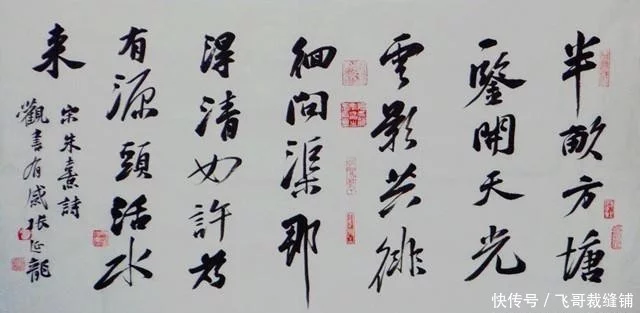 半畝方塘
一鑒開天光
雲影共徘
徊問渠那
得清如許為
有源頭活水
來
宋朱熹詩
觀書有感張延龍
快传号／飞哥裁缝铺